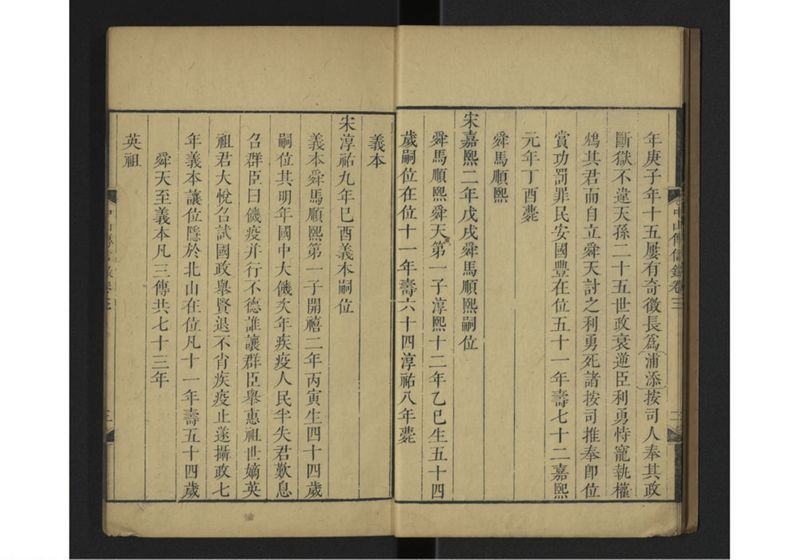 年庚子年十五屢有奇徵長爲浦添按司人奉其政
斷獄不違天孫二十五世政衰逆臣利勇恃寵執權
鴆其君而自立舜天討之利勇死諸按司推奉卽位
賞功罰罪民安國豐在位五十一年壽七十二嘉熙
元年丁酉薨
舜馬順熙
宋嘉熙二年戊戌舜馬順熙嗣位
舜馬順熙舜天第一子淳熙十二年乙巳生五十四
歲嗣位在位十一年壽六十四淳祐八年薨
中山傳信錄卷三
三
義本
宋淳祐九年己酉義本嗣位
義本舜馬順熙第一子開禧二年丙寅生四十四歲
嗣位其明年國中大饑次年疾疫人民半失君歎息
召群臣曰饑疫并行不德誰讓群臣舉惠祖世嫡英
祖君大悅召試國政舉賢退不肖疾疫止遂攝政七
年義本讓位隱於北山在位凡十一年壽五十四歲
舜天至義本凡三傳共七十三年
英祖
中山傳信錄卷三
三